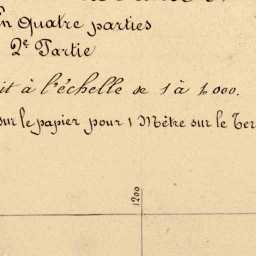 en quatre parties
2e Partie
it à l'échelle de 1 à 1000.
sur le papier pour 1 Mètre sur le Ter
1200